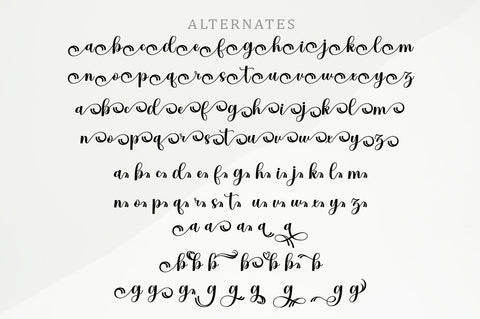 ALTERNATES
a b c d e f g h i j k l m
n o p q r s t u v w x y z
a b c d e f g h i j k l m
n o p q r s t u v w x y z
a b c d e f g h i j k l m
n o p q r s t u v w x y z
a a a a a a
b b b b b b b
g g g g g g g g g g